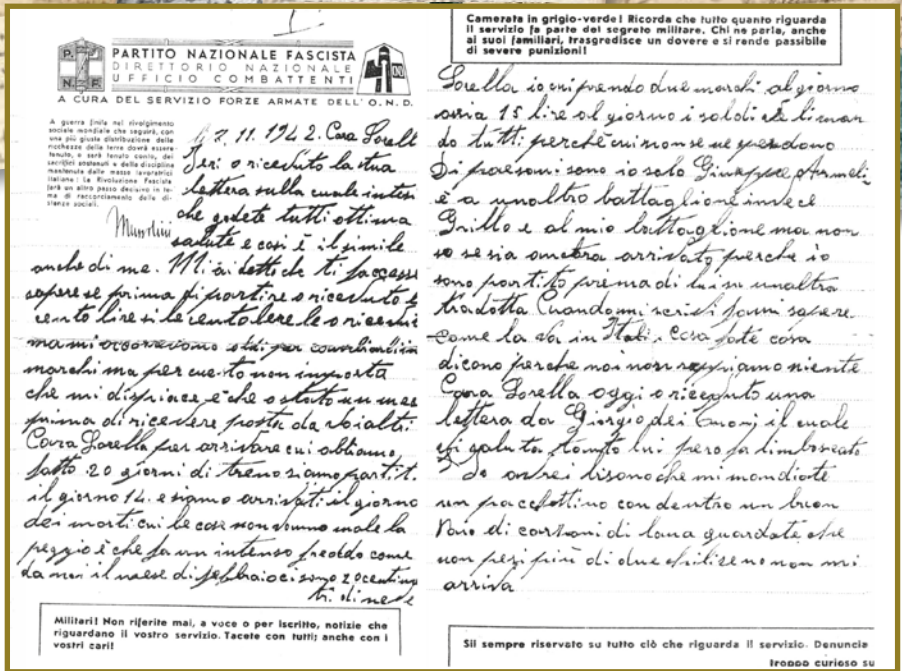 P. N. F.
PARTITO NAZIONALE FASCISTA
DIRETTORIO NAZIONALE
UFFICIO COMBATTENTI
A CURA DEL SERVIZIO FORZE ARMATE DELL' O. N. D.
A guerra finita nel rivolgimento
sociale mondiale che seguirà, con
una più giusta distribuzione delle
ricchezze della terra dovrà essere
tenuto, e sarà tenuto conto, dei
sacrifici sostenuti e della disciplina
mantenuta dalle masse lavoratrici
italiane: La Rivoluzione Fascista
farà un altro passo decisivo in te-
ma di raccorciamento delle di-
stanze sociali.
Mussolini
li 7.11.1942. Cara Sorell
Ieri o riceduto la tua
lettera sulla cuale intesi
che godete tutti ottima
salute e cosi è il simile
anche di me. Mi ai detto che ti facesse
sapere se prima di partire o ricevuto
cento lire si le cento lere le o ricevute
ma mi occorrevono
marchi ma per cuesto non importa
che mi dispiace è che o stato un mes
prima di ricevere posta da voialtri
Cara Sorella per arrivare cui abbiamo
fatto 20 giorni di treno siamo partiti
il giorno 14. e siamo arrivati il giorno
dei morti cui le cose non vanno male la
peggio è che fa un intenso freddo come
da noi il maese di febbraio ci sono 20 centime
tri di neve
Militari! Non riferite mai, a voce o per iscritto, notizie che
riguardano il vostro servizio. Tacete con tutti; anche con i
vostri cari!
Camerata in grigio-verde! Ricorda che tutto quanto riguarda
il servizio fa parte del segreto militare. Chi ne parla, anche
ai suoi familiari, trasgredisce un dovere e si rende passibile
di severe punizioni!
Sorella io cui prendo due marchi al giorno
ossia 15 lire al giorno i soldi ve li man
do tutti perchè cui non se ne spendono
Di paesani sono io solo Giuseppe Armeli
è a unaltro battaglione invece
Grillo e al mio battaglione ma non
so se sia ancora arrivato perche io
sono partito prima di lui su unaltra
tradotta Cuando mi scrivi fami sapere
come la va in Itali. Cosa fate cosa
dicono perche noi non sappiamo niente
Cara Sorella oggi o riceputo una
lettera da Giorgio dei il cuale
vi saluta tanto lui pero fa l'imboscato
Io avrei bisono che mi mandiate
un pacchettino con dentro un buon
Paro di carzoni di lana guardate che
non pesi piú di due chili se no non mi
arriva
Sii sempre riservato su tutto ciò che riguarda il servizio. Denuncia
troppo curioso su